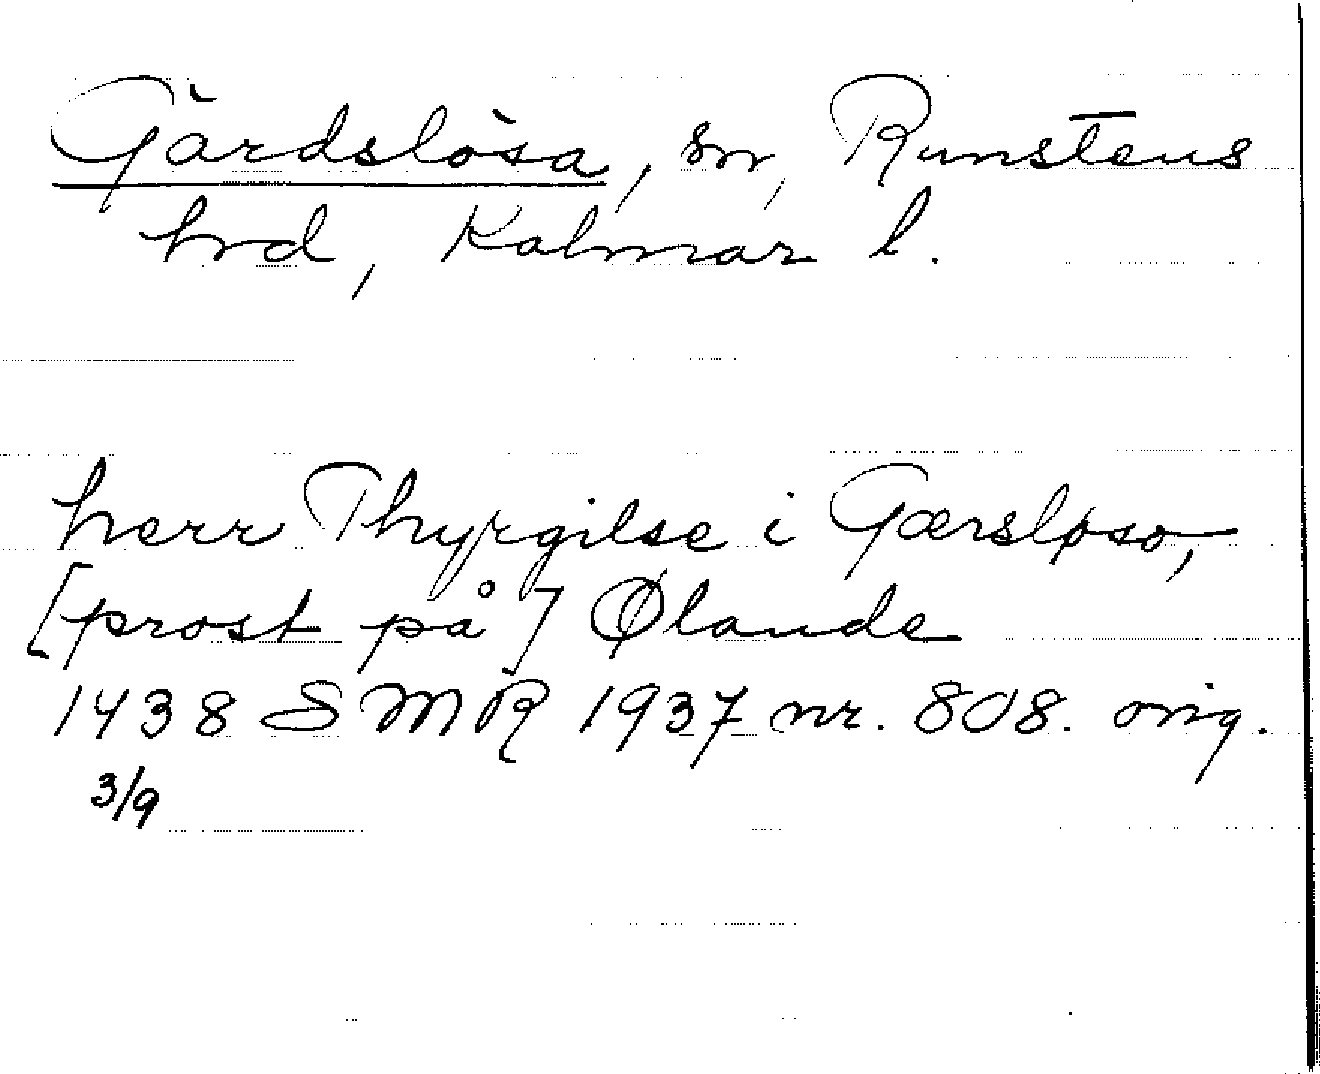 Gärdslösa, sn, Runstens
hrd, Kalmar l.
herr Thyrgilse i Gærsløso,
[prost på] Ølande
1438 SMR 1937 nr. 808. orig.
3/9